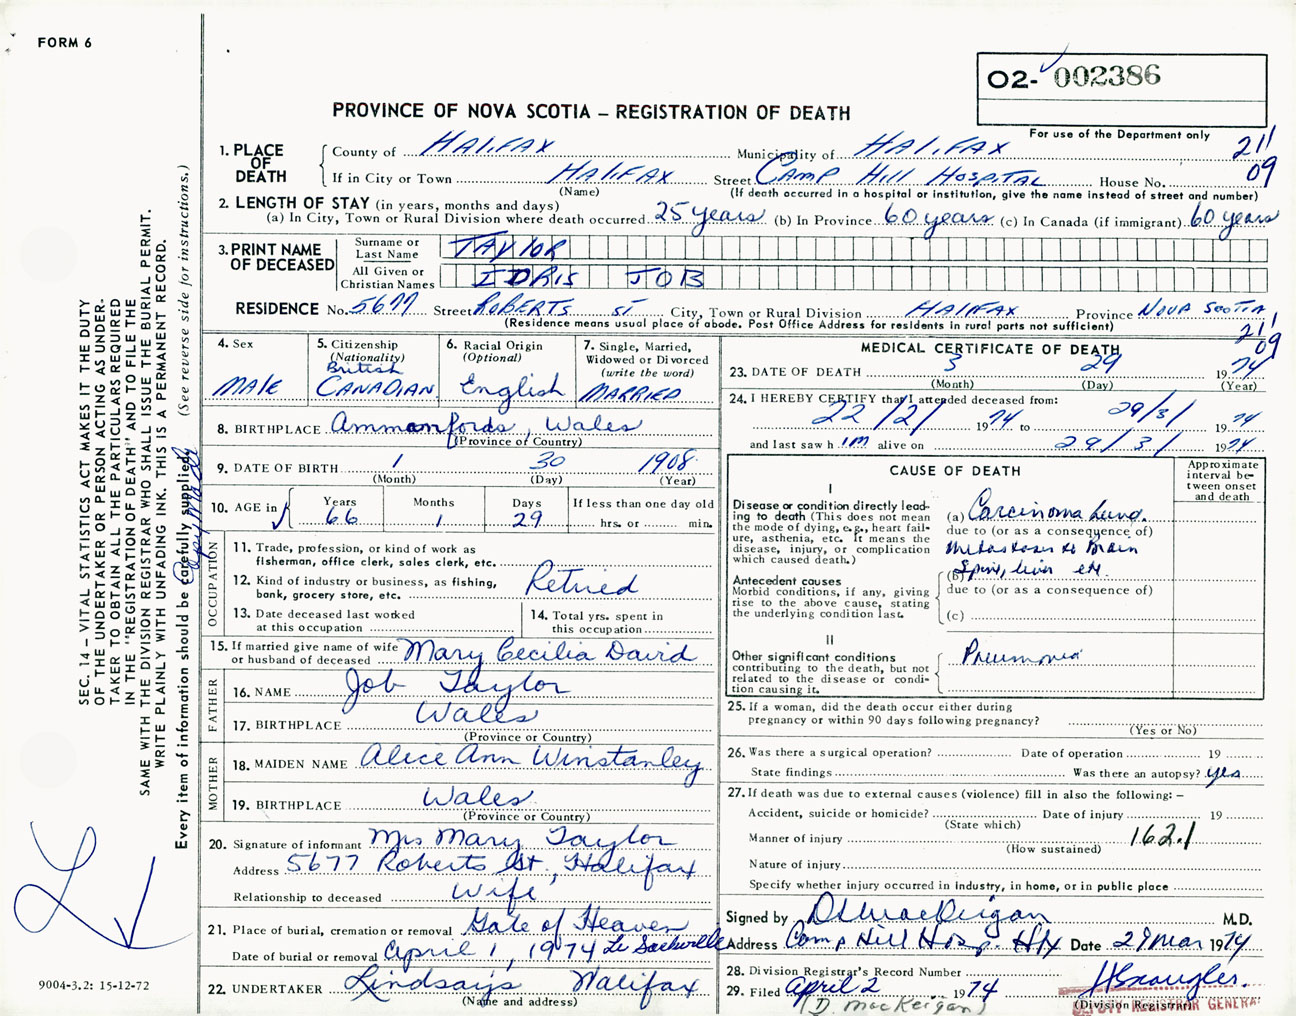 FORM 6
O2- 002386
PROVINCE OF NOVA SCOTIA – REGISTRATION OF DEATH
For use of the Department only
211
09
1. PLACE OF DEATH
County of HALIFAX Municipality of HALIFAX
If in City or Town HALIFAX Street CAMP HILL HOSPITAL House No.
(Name) (If death occurred in a hospital or institution, give the name instead of street and number)
2. LENGTH OF STAY (in years, months and days)
(a) In City, Town or Rural Division where death occurred 25 years (b) In Province 60 years (c) In Canada (if immigrant) 60 years
3. PRINT NAME OF DECEASED
Surname or Last Name TAYLOR
All Given or Christian Names IDRIS JOB
RESIDENCE No. 5677 Street ROBERTS ST City, Town or Rural Division HALIFAX Province NOVA SCOTIA
(Residence means usual place of abode. Post Office Address for residents in rural parts not sufficient)
211
09
4. Sex
MALE
5. Citizenship
(Nationality)
British
CANADIAN
6. Racial Origin
(Optional)
English
7. Single, Married,
Widowed or Divorced
(write the word)
MARRIED
8. BIRTHPLACE Ammanfords, Wales
(Province of Country)
9. DATE OF BIRTH 1 30 1908
(Month) (Day) (Year)
10. AGE in
Years Months Days If less than one day old
66 1 29 hrs. or min.
OCCUPATION
11. Trade, profession, or kind of work as
fisherman, office clerk, sales clerk, etc.
12. Kind of industry or business, as fishing,
bank, grocery store, etc. Retired
13. Date deceased last worked
at this occupation
14. Total yrs. spent in
this occupation
15. If married give name of wife
or husband of deceased Mary Cecilia David
FATHER
16. NAME Job Taylor
17. BIRTHPLACE Wales
(Province or Country)
MOTHER
18. MAIDEN NAME Alice Ann Winstanley
19. BIRTHPLACE Wales
(Province or Country)
20. Signature of informant Mrs Mary Taylor
Address 5677 Roberts St., Halifax
Relationship to deceased Wife
21. Place of burial, cremation or removal Gate of Heaven
Date of burial or removal April 1, 1974 Lr Sackville
22. UNDERTAKER Lindsay's Halifax
(Name and address)
MEDICAL CERTIFICATE OF DEATH
23. DATE OF DEATH 3 29 1974
(Month) (Day) (Year)
24. I HEREBY CERTIFY that I attended deceased from:
22/2/ 1974 to 29/3/ 1974
and last saw him alive on 29/3/ 1974
CAUSE OF DEATH
Approximate
interval be-
tween onset
and death
I
Disease or condition directly lead-
ing to death (This does not mean
the mode of dying, e.g., heart fail-
ure, asthenia, etc. It means the
disease, injury, or complication
which caused death.)
(a) Carcinoma Lung.
due to (or as a consequence of)
Metastases to Brain
Spine, liver etc.
Antecedent causes
Morbid conditions, if any, giving
rise to the above cause, stating
the underlying condition last.
(b)
due to (or as a consequence of)
(c)
II
Other significant conditions
contributing to the death, but not
related to the disease or condi-
tion causing it.
Pneumonia
25. If a woman, did the death occur either during
pregnancy or within 90 days following pregnancy?
(Yes or No)
26. Was there a surgical operation? Date of operation 19
State findings Was there an autopsy? yes
27. If death was due to external causes (violence) fill in also the following: –
Accident, suicide or homicide? Date of injury 19
(State which)
Manner of injury 162.1
(How sustained)
Nature of injury
Specify whether injury occurred in industry, in home, or in public place
Signed by D MacKeigan M.D.
Address Camp Hill Hosp. Hfx Date 29 Mar 1974
28. Division Registrar's Record Number
29. Filed April 2 1974
(Division Registrar)
(D. MacKeigan)
DEPUTY REGISTRAR GENERAL
SEC. 14 – VITAL STATISTICS ACT MAKES IT THE DUTY
OF THE UNDERTAKER OR PERSON ACTING AS UNDER-
TAKER TO OBTAIN ALL THE PARTICULARS REQUIRED
IN THE "REGISTRATION OF DEATH" AND TO FILE THE
SAME WITH THE DIVISION REGISTRAR WHO SHALL ISSUE THE BURIAL PERMIT.
WRITE PLAINLY WITH UNFADING INK. THIS IS A PERMANENT RECORD.
Every item of information should be carefully supplied. (See reverse side for instructions.)
9004-3.2: 15-12-72